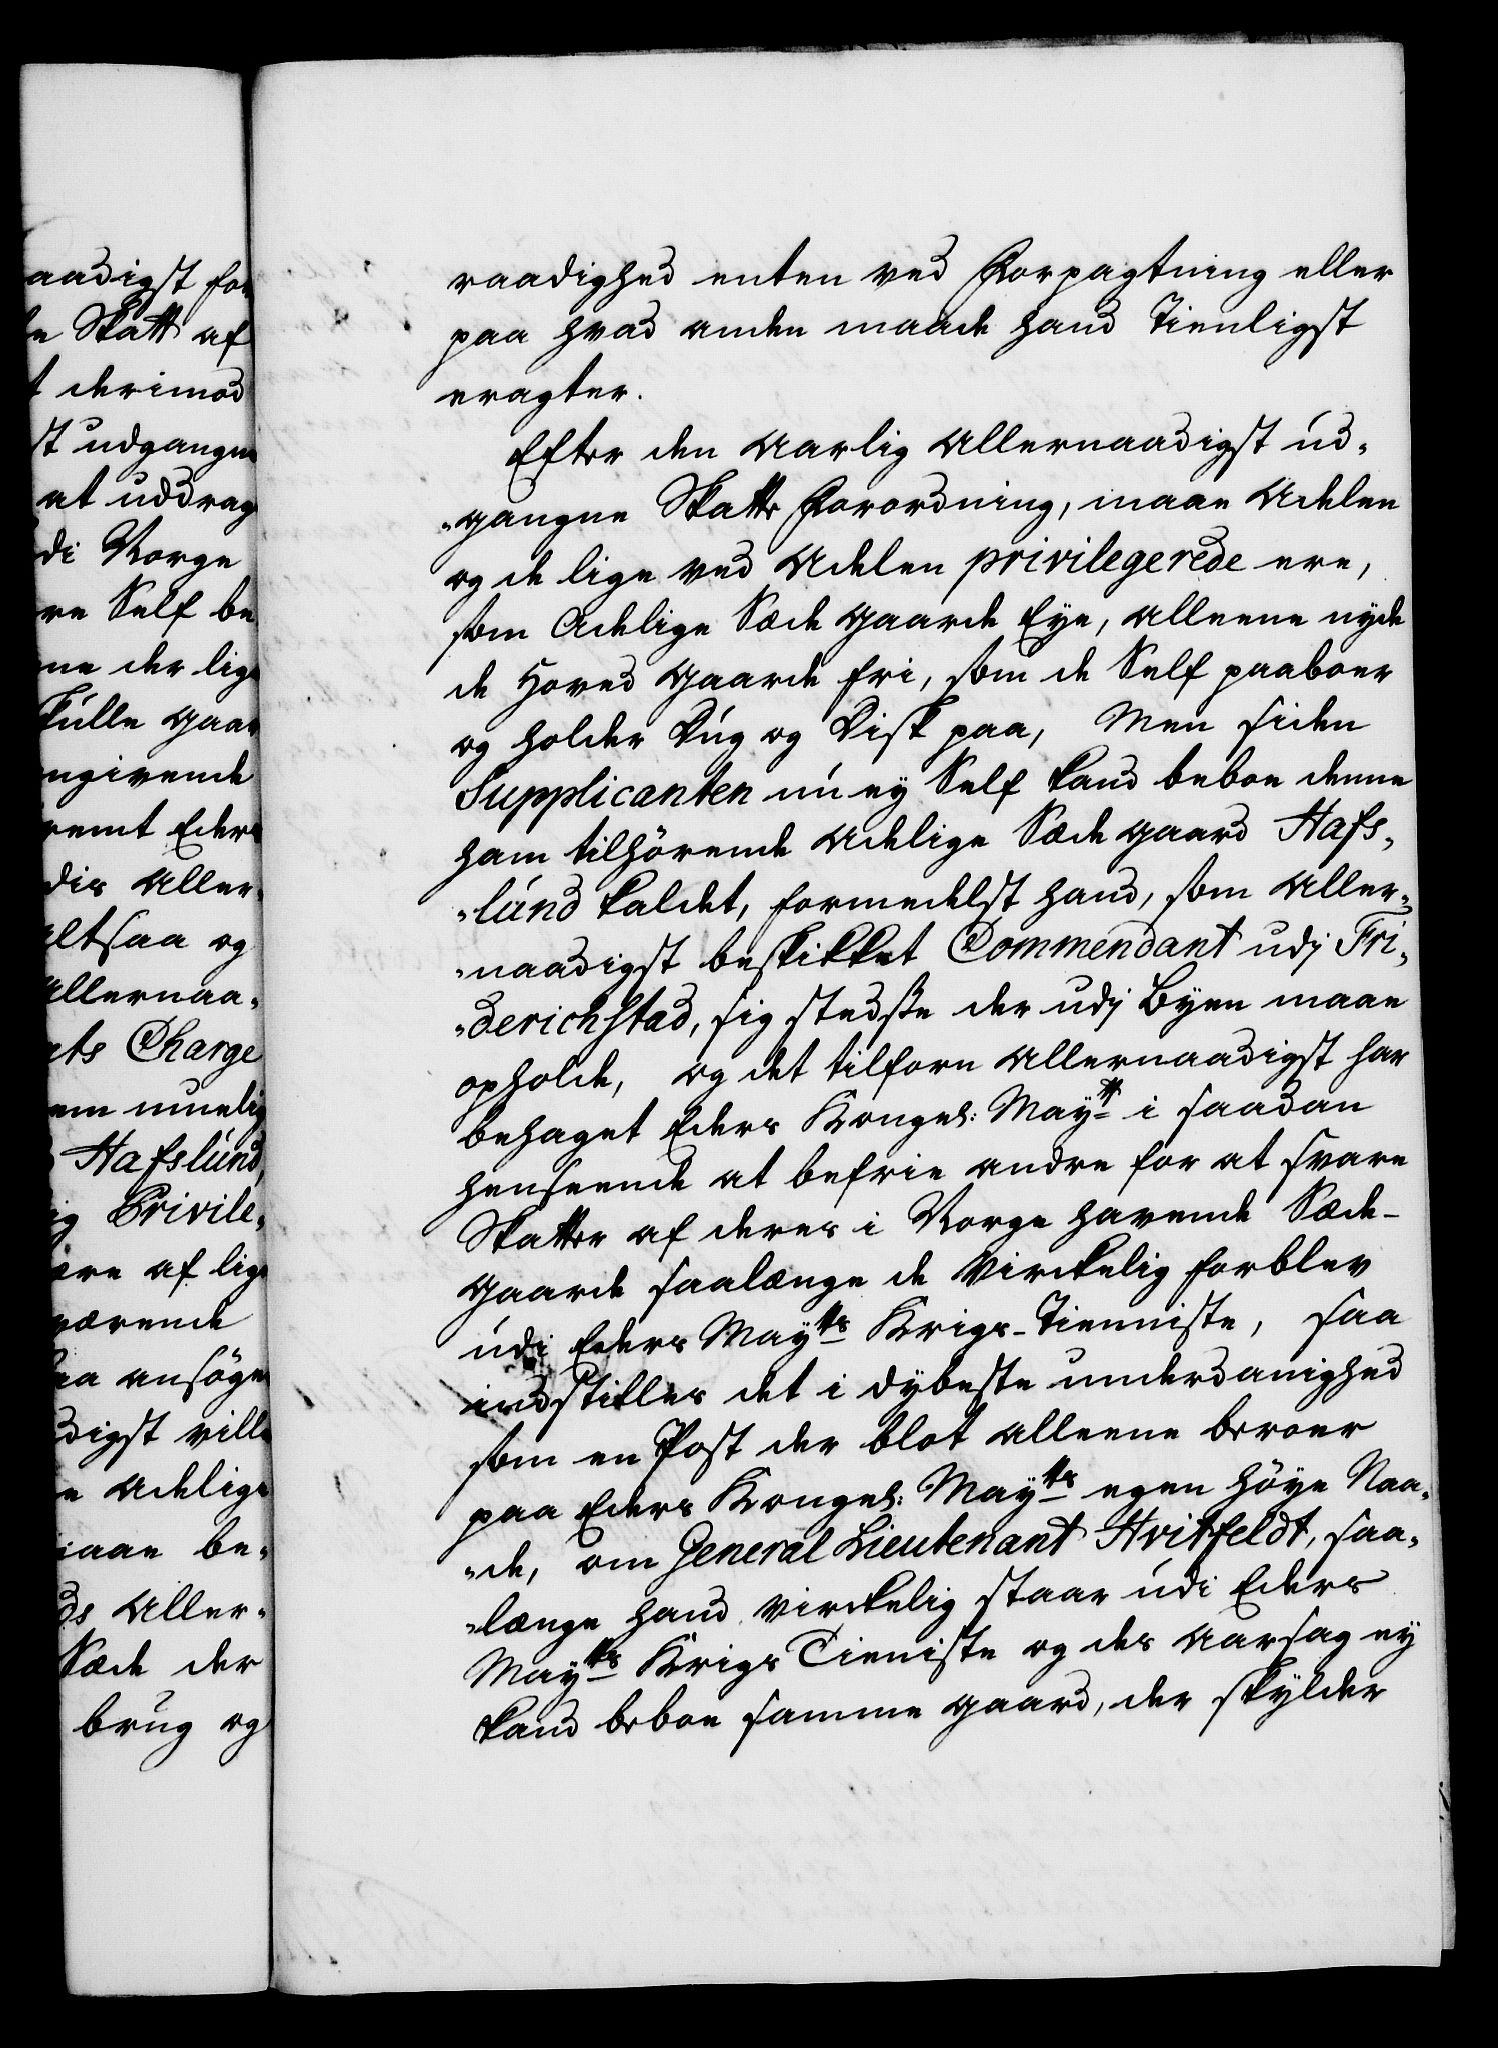 aadigst for
e Skatt af
t derimod
st udgangne
at uddrag
di Norge
re Self be
ne der lige
kulle gaar
ngivende
remt Eders
dis Aller-
altsaa og
Allernaa-
ets Charge
em muelig
Hafslund,
ig Privile-
ære af lige
værende
aa ansöge
digst ville
e Adelige
maae be-
ds Aller-
Sæde der
brug og
raadighed enten ved Forpagtning eller
paa hvad anden maade hand Tienligst
eragter.
Efter den Aarlig Allernaadigst ud-
-gangne Skatte Forordning, maae Adelen
og de lige ved Adelen privilegerede ere,
som Adelige Sæde Gaarde Eye, Alleene nyde
de Hoved Gaarde fri, som de Self paaboer
og holder Dug og Disk paa, Men siden
Supplicanten nu ey Self kand beboe denne
ham tilhörende Adelige Sæde gaard Hafs-
-lund kaldet, formedelst hand, som Aller-
-naadigst beskikket Commendant udj Fri-
-derichstad, sig stedsse der udj Byen maae
opholde, og det tilforn Allernaadigst har
behaget Eders Kongel: Maytt i saadan
henseende at befrie andre for at svare
Skatter af deres i Norge havende Sæde-
Gaarde saalænge de Virckelig forblev
udi Eders Maytts Krigs-Tienniste, saa
indstilles det i dybeste underdanighed
som en Post der blot Alleene beroer
paa Eders Kongel: Maytts egen höye Naa-
-de, om General Lieutenant Hvitfeldt, saa-
-længe hand virckelig staar udi Eders
Maytts Krigs Tieniste og des Aarsag ey
kand beboe samme gaard, der skylder